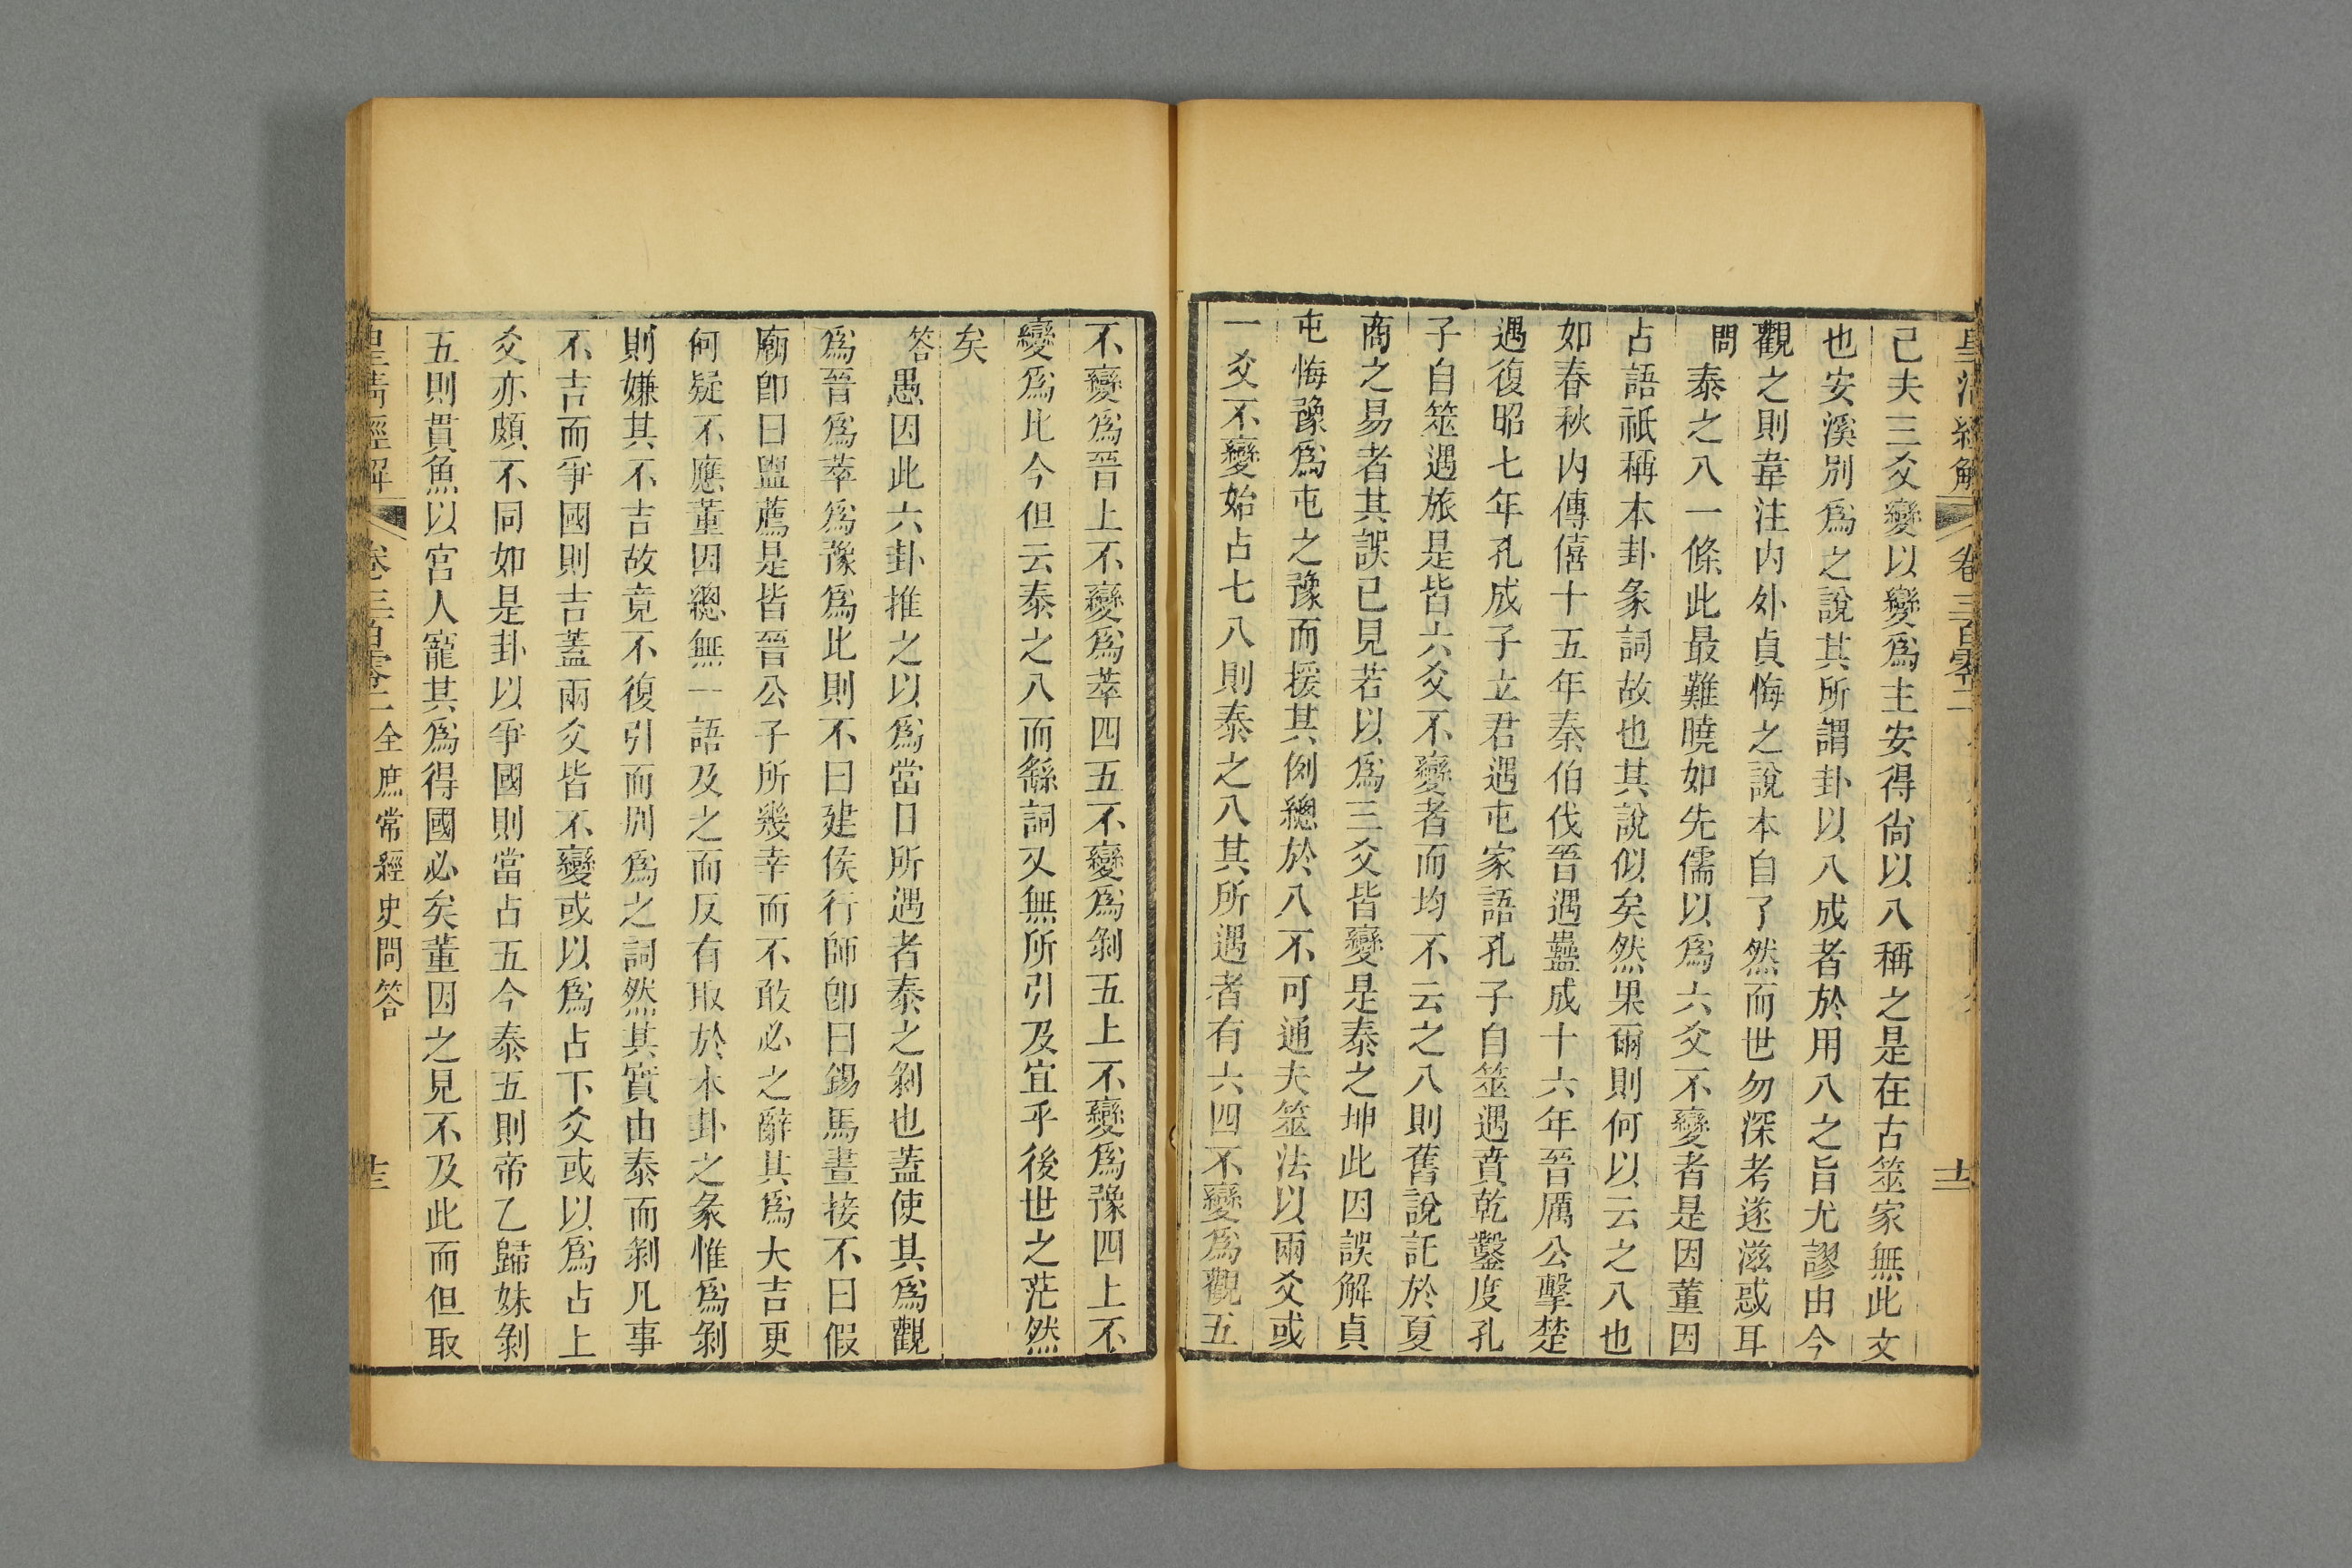 皇清經解 卷三百零二 十二
己夫三爻變以變爲主安得尙以八稱之是在古筮家無此文
也安溪別爲之說其所謂卦以八成者於用八之旨尤謬由今
觀之則韋注內外貞悔之說本自了然而世勿深考遂滋惑耳
問泰之八一條此最難曉如先儒以爲六爻不變者是因董因
占語祇稱本卦彖詞故也其說似矣然果爾則何以云之八也
如春秋內傳僖十五年秦伯伐晉遇蠱成十六年晉厲公擊楚
遇復昭七年孔成子立君遇屯家語孔子自筮遇賁乾鑿度孔
子自筮遇旅是皆六爻不變者而均不云之八則舊說託於夏
商之易者其誤已見若以爲三爻皆變是泰之坤此因誤解貞
屯悔豫爲屯之豫而援其例總於八不可通夫筮法以兩爻或
一爻不變始占七八則泰之八其所遇者有六四不變爲觀五
不變爲晉上不變爲萃四五不變爲剝五上不變爲豫四上不
變爲比今但云泰之八而繇詞又無所引及宜乎後世之茫然
矣
答愚因此六卦推之以爲當日所遇者泰之剝也蓋使其爲觀
爲晉爲萃爲豫爲比則不曰建侯行師卽曰錫馬晝接不曰假
廟卽曰盥薦是皆晉公子所幾幸而不敢必之辭其爲大吉更
何疑不應董因總無一語及之而反有取於本卦之彖惟爲剝
則嫌其不吉故竟不復引而別爲之詞然其實由泰而剝凡事
不吉而爭國則吉蓋兩爻皆不變或以爲占下爻或以爲占上
爻亦頗不同如是卦以爭國則當占五今泰五則帝乙歸妹剝
五則貫魚以宮人寵其爲得國必矣董因之見不及此而但取
皇清經解 卷三百零二 全庶常經史問答 十三